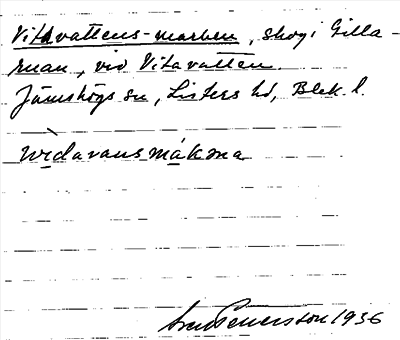 Vitavattens-marken, skog i Gilla-
ruan, vid Vitavatten.
Jämshögs sn, Listers hd, Blek. l.
wìdavansmákma
Sven Benersson 1936